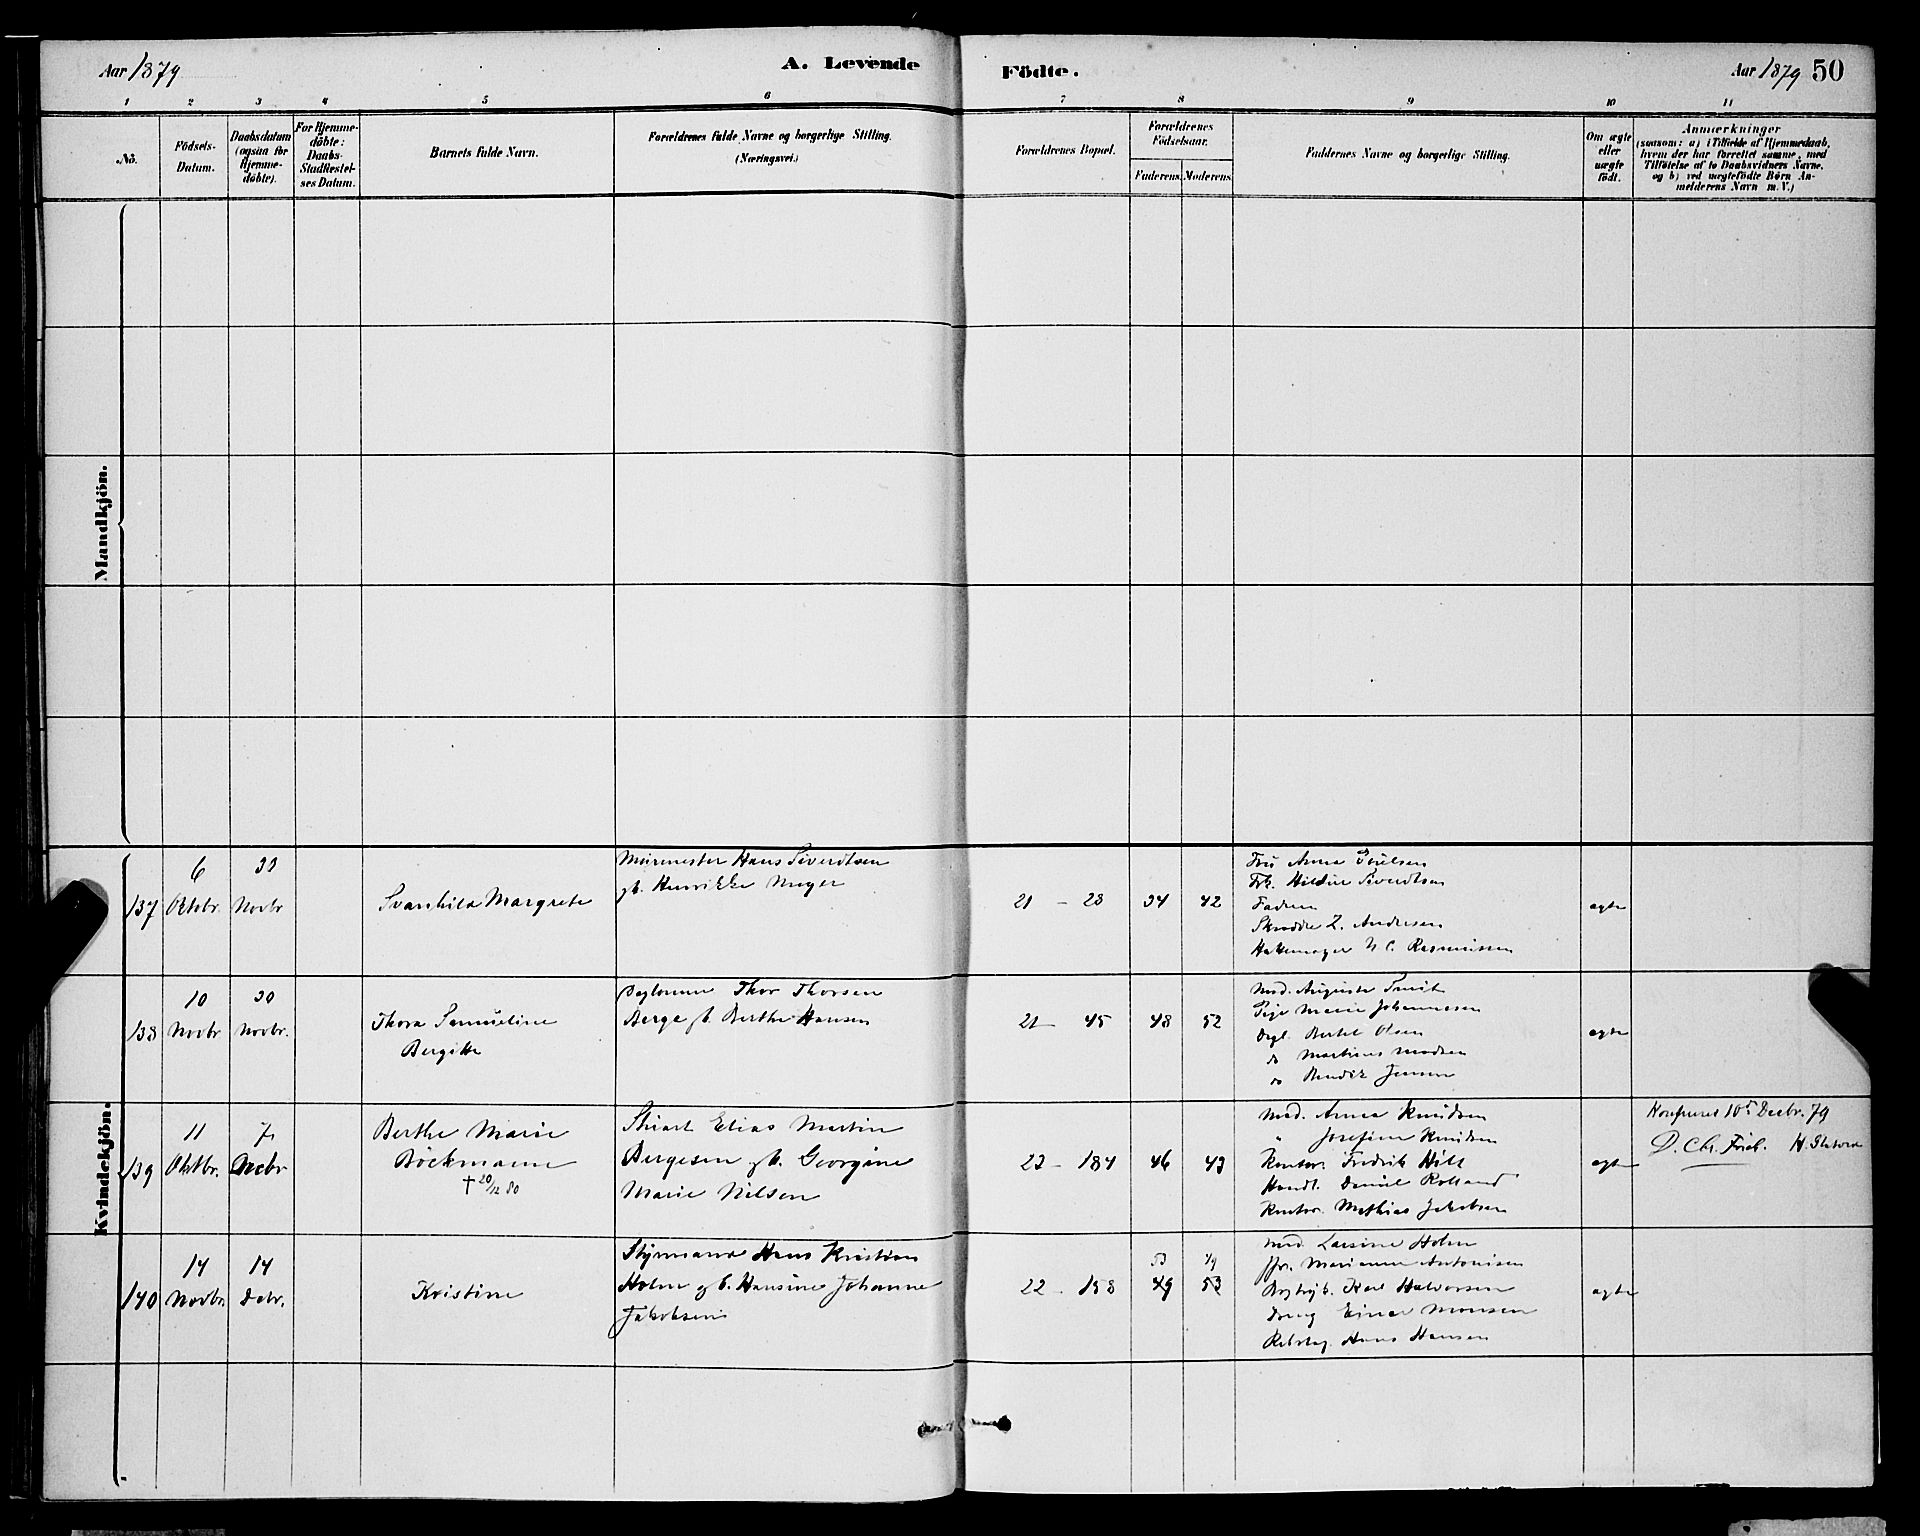 Aar 1879
A. Levende
Födte.
Aar 1879 50
1 2 3 4 5 6 7 8 9 10 11
No.
Födsels-
Datum.
Daabsdatum
(ogsaa for
Hjemme-
döbte).
For Hjemme-
döbte:
Daabs-
Stadfæstel-
ses Datum.
Barnets fulde Navn.
Forældrenes fulde Navne og borgerlige Stilling.
(Næringsvei.)
Forældrenes Bopæl.
Forældrenes
Födselsaar.
Faderens. Moderens.
Faddernes Navne og borgerlige Stilling.
Om ægte
eller
uægte
födt.
Anmærkninger
(saasom: a) i Tilfælde af Hjemmedaab,
hvem der har forrettet samme, med
Tilföielse af to Daabsvidners Navne,
og b) ved uægtefödte Börn An-
melderens Navn m. V.)
Mandkjön.
Kvindekjön.
137
6
Oktbr
30
Novbr
Svanhild Margrete
Murmester Hans Sivertsen
gb. Henrikke Meyer
21 - 28
34
42
Fru Anna
Frk. Sivertsen
Fadren
Skrædder Z. Andresen
Hattemager N C. Rasmussen
ægte
138
10
Novbr
30
Novbr.
Thora Samueline
Bergitte
Daglönner Thor Thorsen
Berge gb. Berthe Hansen
21 - 45
48
52
Mad. Auguste
Pige Marie Johannesen
Dagl. Bertel Olsen
do Martinus Madsen
do Bendik Jensen
ægte
139
11
Oktbr.
7
Decbr
Berthe Marie
Böckmann
† 20/12 80
Stuart Elias Martin
Bergesen gb. Georgine
Marie Nilsen
23 - 184
46
43
Mad. Anna Knudsen
" Josefine Knudsen
Kontor. Fredrik Hilt
Handl. Daniel Rolland
Kontor. Mathias Jakobsen
ægte
Konfereret 10de Decbr. 79
D. Chr. H.
140
14
Novbr.
14
Debr.
Kristine
Styrmand Hans Kristian
Holm gb. Hansine Johanne
Jakobsen
22 - 158
53
49
49
53
Mad. Larsine Holm
Jfr. Marianne Antonisen
Karl Halvorsen
Dreng Einar Monsen
Rebslag. Hans Hansen
ægte